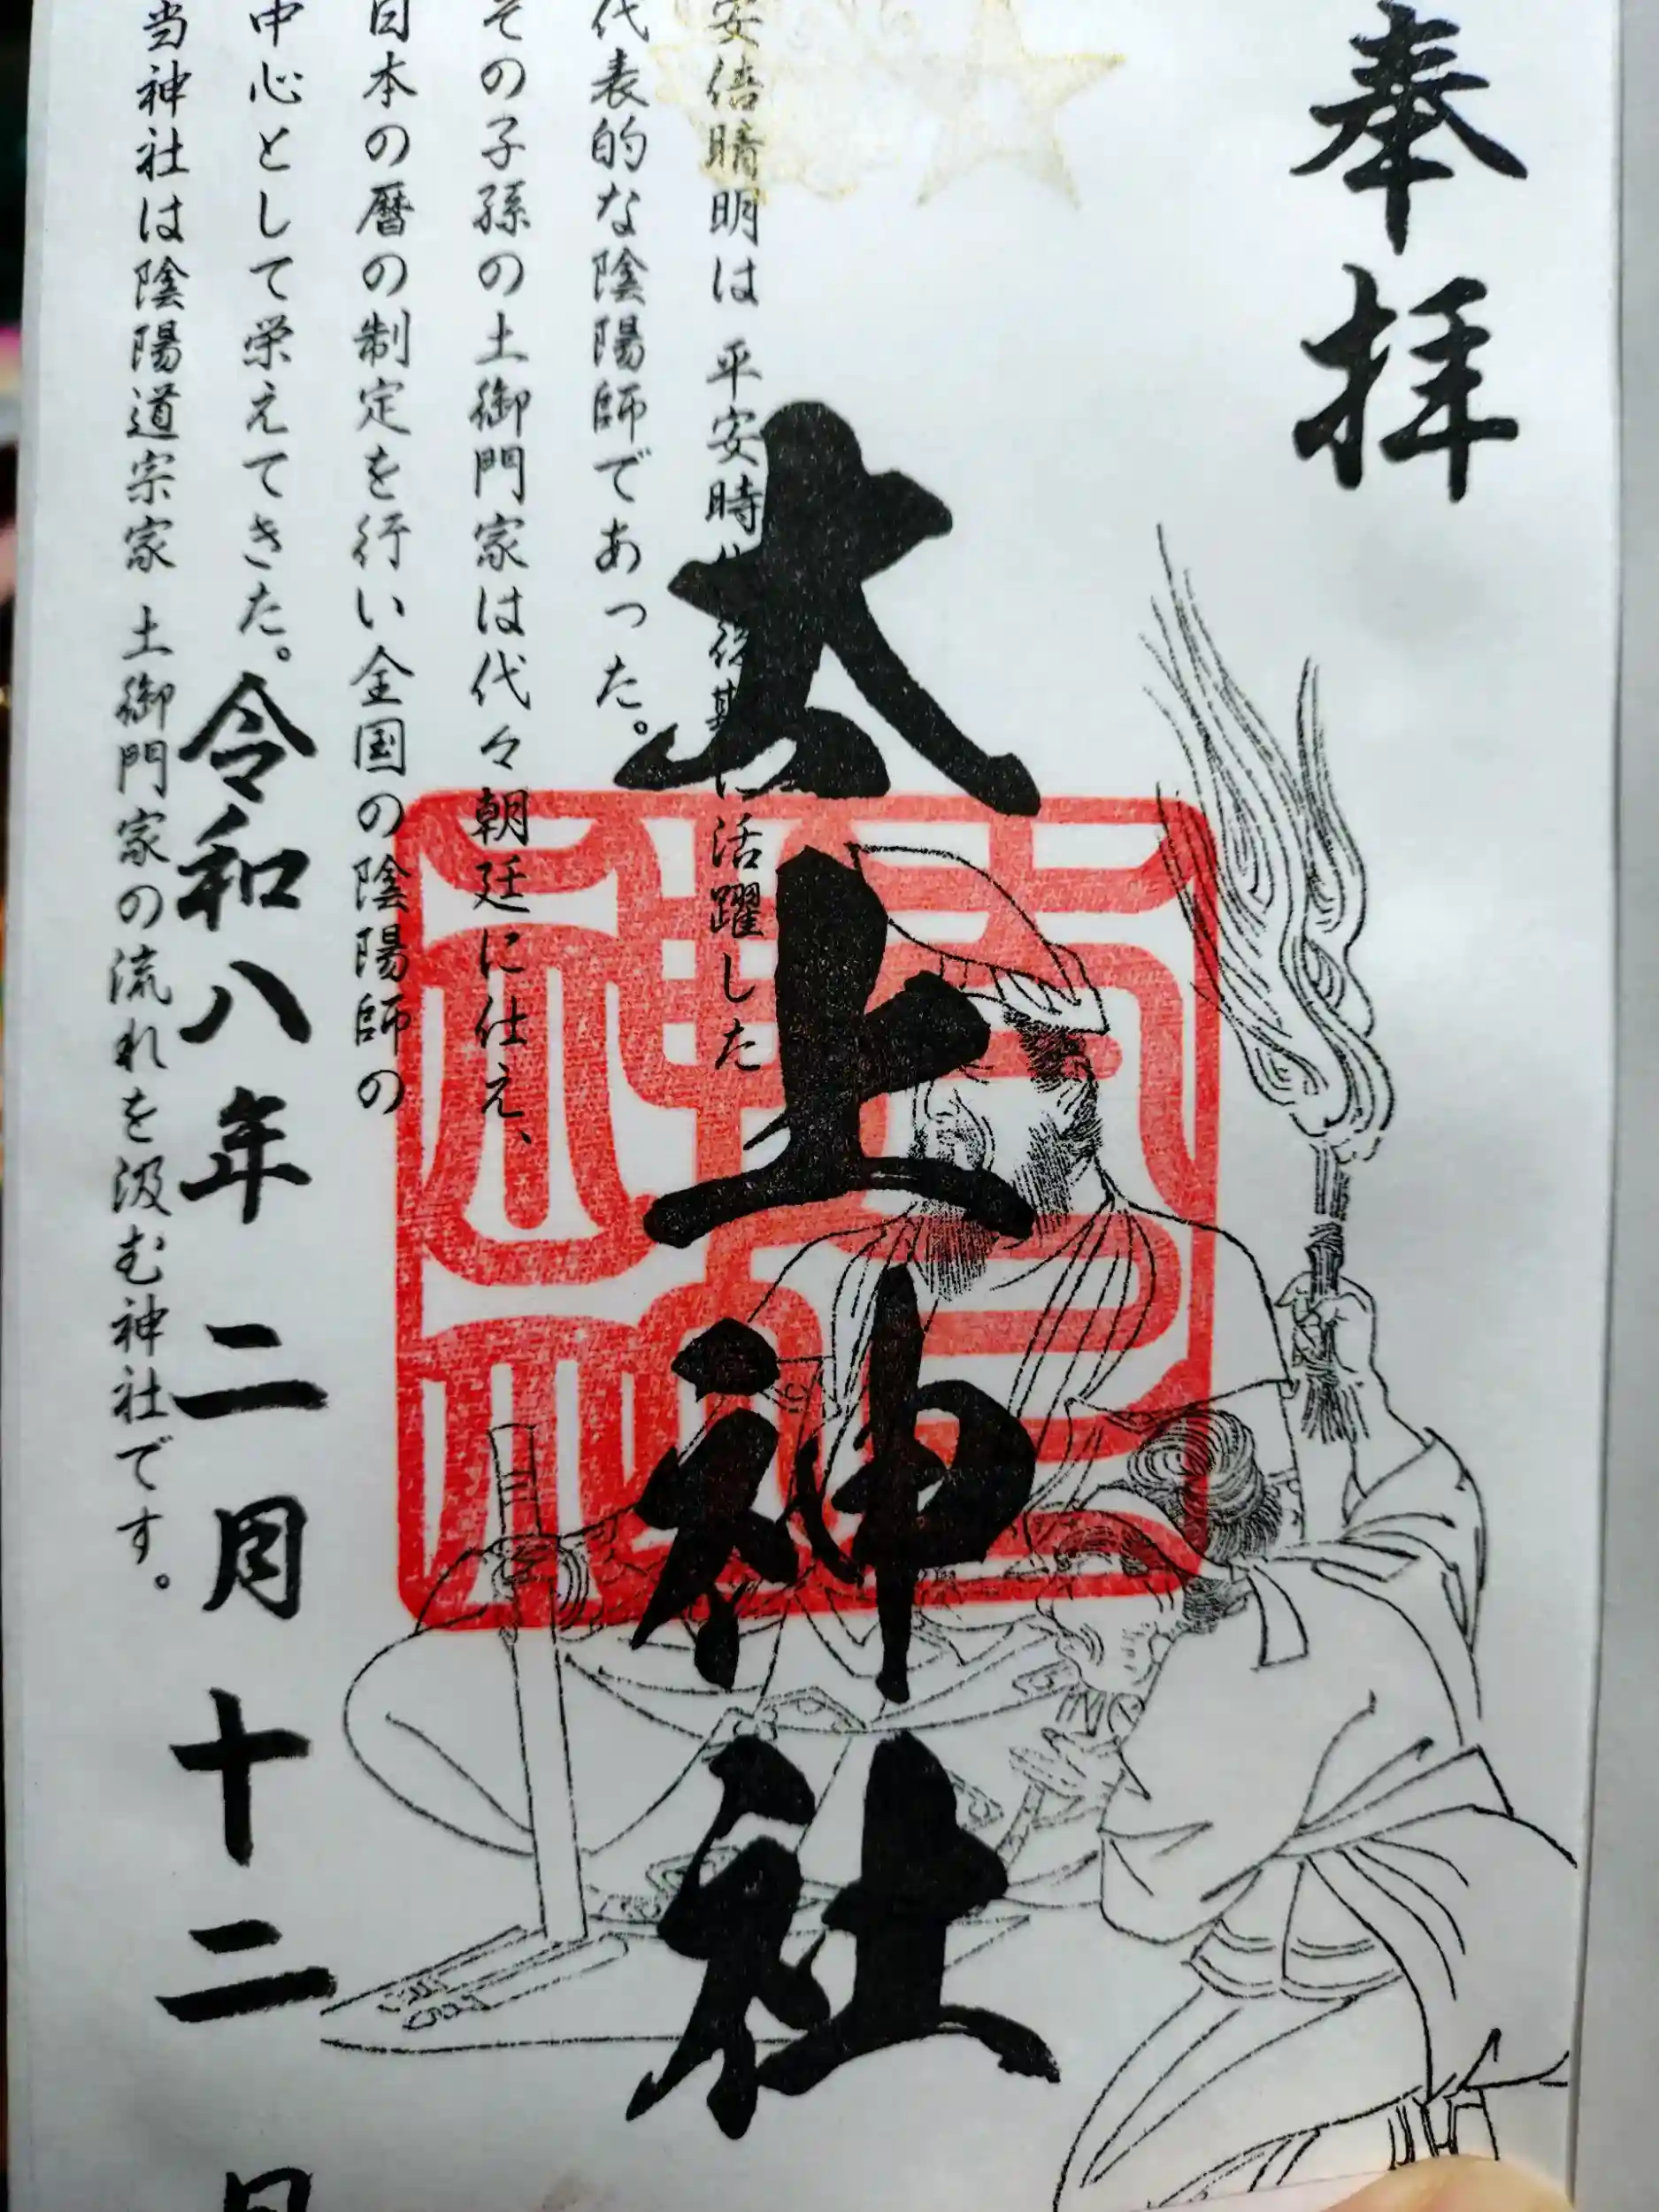 奉拝
太上神社
安倍晴明は 平安時代後期に活躍した
代表的な陰陽師であった。
その子孫の土御門家は代々朝廷に仕え、
日本の暦の制定を行い全国の陰陽師の
中心として栄えてきた。
当神社は陰陽道宗家 土御門家の流れを汲む神社です。
令和八年二月十二日